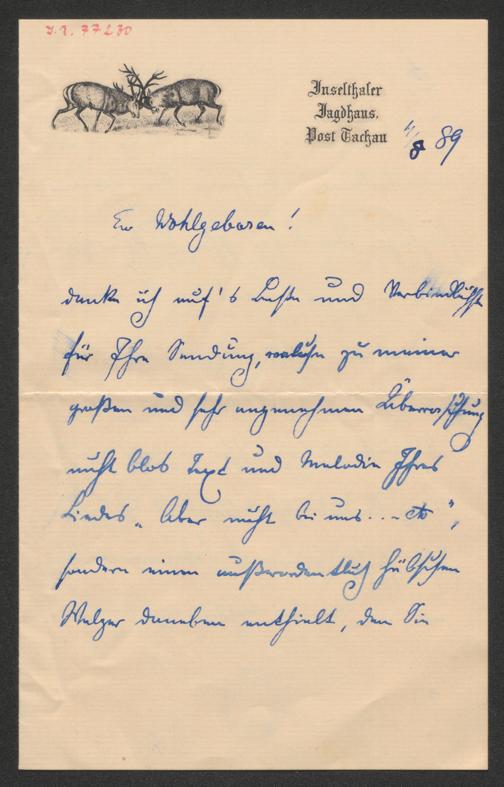 J.N. 77230
Inselthaler
Jagdhaus.
Post Tachau
4/8 89
Ew Wohlgeboren!
danke ich auf's Beste und Verbindlichste
für Ihre Sendung, welche zu meiner
großen und sehr angenehmen Überraschung
nicht blos Text und Melodie Ihres
Liedes „Aber nicht bei uns... etc",
sondern einen außerordentlich hübschen
Walzer daneben enthielt, den Sie